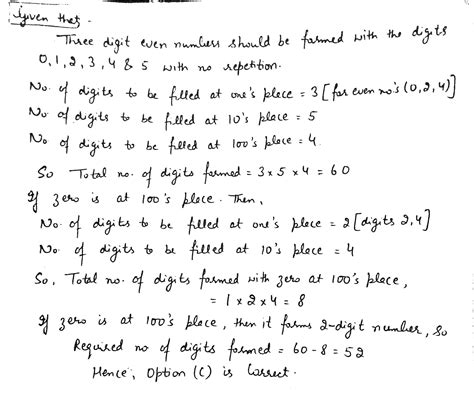 Given that,
Three digit even numbers should be formed with the digits
0, 1, 2, 3, 4 & 5 with no repetition.
No. of digits to be filled at one's place = 3 [for even no's (0, 2, 4)]
No of digits to be filled at 10's place = 5
No of digits to be filled at 100's place = 4
So Total no. of digits formed = 3 x 5 x 4 = 60
If zero is at 100's place. Then,
No. of digits to be filled at one's place = 2 [digits 2, 4]
No. of digits to be filled at 10's place = 4
So, Total no. of digits formed with zero at 100's place,
= 1 x 2 x 4 = 8
If zero is at 100's place, then it forms 2-digit number, So
Required no of digits formed = 60 - 8 = 52
Hence, Option (C) is Correct.